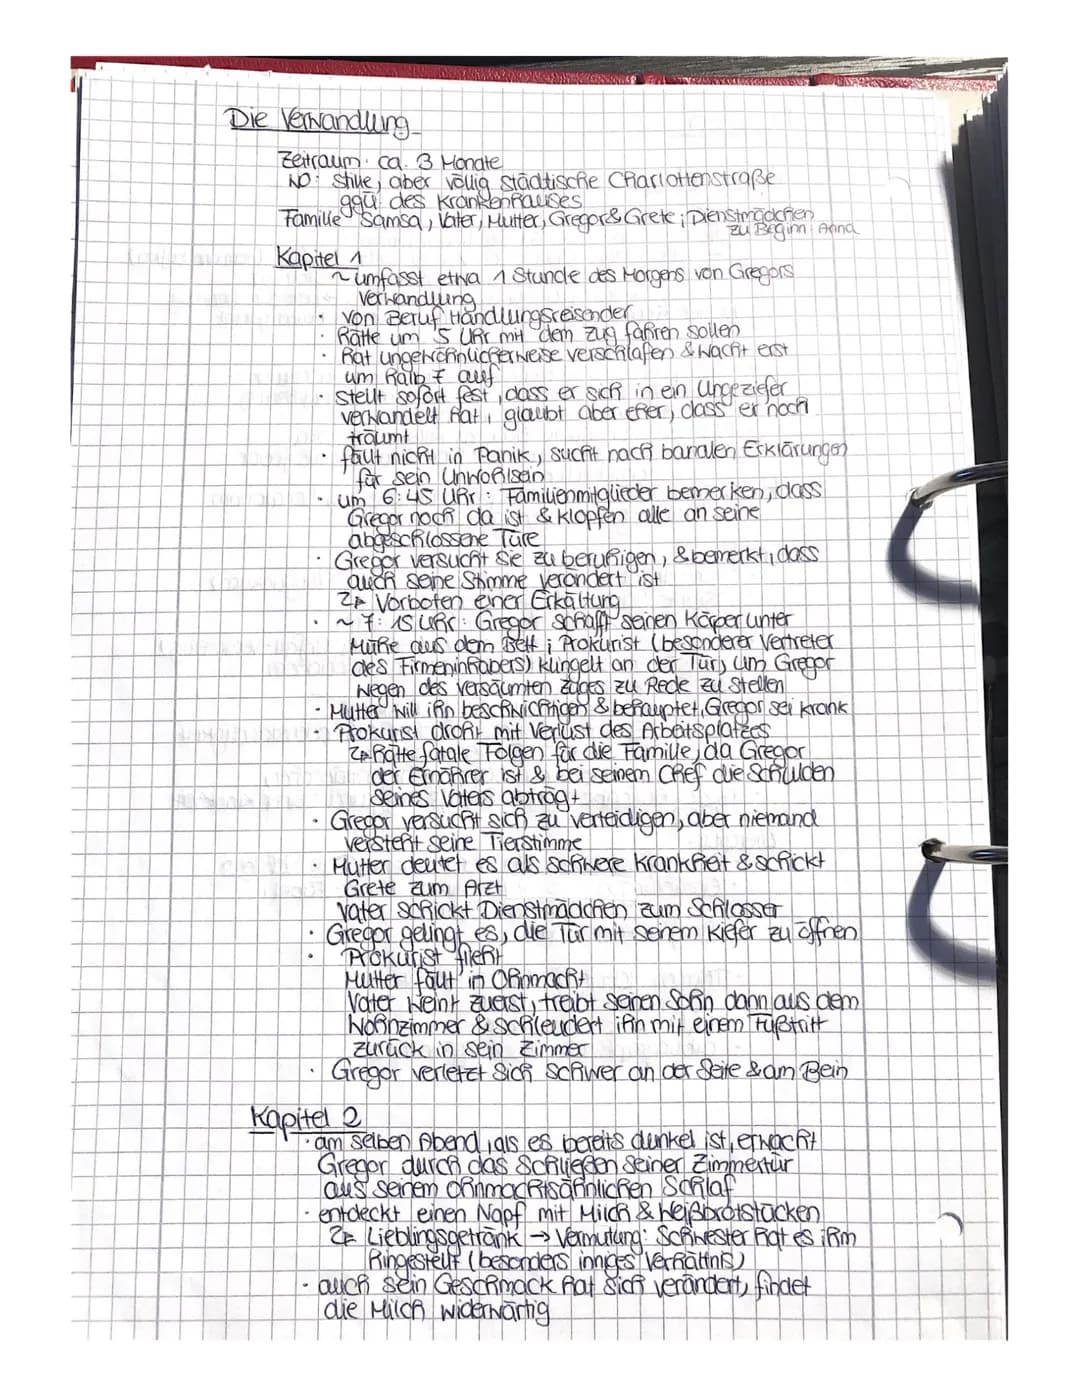 Die Verwandlung
Zeitraum: ca. 3 Monate
WO: stille, aber völlig städtische Charlottenstraße
ggü. des Krankenhauses
Familie Samsa, Vater, Mutter, Gregor & Grete; Dienstmädchen
zu Beginn: Anna
Kapitel 1
~ umfasst etwa 1 Stunde des Morgens von Gregors
Verwandlung
· von Beruf Handlungsreisender
· hätte um 5 Uhr mit dem Zug fahren sollen
· hat ungewöhnlicherweise verschlafen & wacht erst
um halb 7 auf
· stellt sofort fest, dass er sich in ein Ungeziefer
verwandelt hat, glaubt aber eher, dass er noch
träumt
· fällt nicht in Panik, sucht nach banalen Erklärungen
für sein Unwohlsein
· um 6:45 Uhr: Familienmitglieder bemerken, dass
Gregor noch da ist & klopfen alle an seine
abgeschlossene Türe
· Gregor versucht sie zu beruhigen, & bemerkt, dass
auch seine Stimme verändert ist
↳ Vorboten einer Erkältung
· ~ 7:15 Uhr: Gregor schafft seinen Körper unter
Mühe aus dem Bett; Prokurist (besonderer Vertreter
des Firmeninhabers) klingelt an der Tür, um Gregor
wegen des versäumten Zuges zu Rede zu stellen
· Mutter will ihn beschwichtigen & behauptet, Gregor sei krank
· Prokurist droht mit Verlust des Arbeitsplatzes
↳ hätte fatale Folgen für die Familie, da Gregor
der Ernährer ist & bei seinem Chef die Schulden
seines Vaters abträgt
· Gregor versucht sich zu verteidigen, aber niemand
versteht seine Tierstimme
· Mutter deutet es als schwere Krankheit & schickt
Grete zum Arzt
Vater schickt Dienstmädchen zum Schlosser
· Gregor gelingt es, die Tür mit seinem Kiefer zu öffnen
· Prokurist flieht
Mutter fällt in Ohnmacht
Vater weint zuerst, treibt seinen Sohn dann aus dem
Wohnzimmer & schleudert ihn mit einem Fußtritt
zurück in sein Zimmer
· Gregor verletzt sich schwer an der Seite & am Bein
Kapitel 2
· am selben Abend, als es bereits dunkel ist, erwacht
Gregor durch das Schließen seiner Zimmertür
aus seinem ohnmachtsähnlichen Schlaf
· entdeckt einen Napf mit Milch & Weißbrotstücken
↳ Lieblingsgetränk → Vermutung: Schwester hat es ihm
hingestellt (besonders inniges Verhältnis)
· auch sein Geschmack hat sich verändert, findet
die Milch widerwärtig